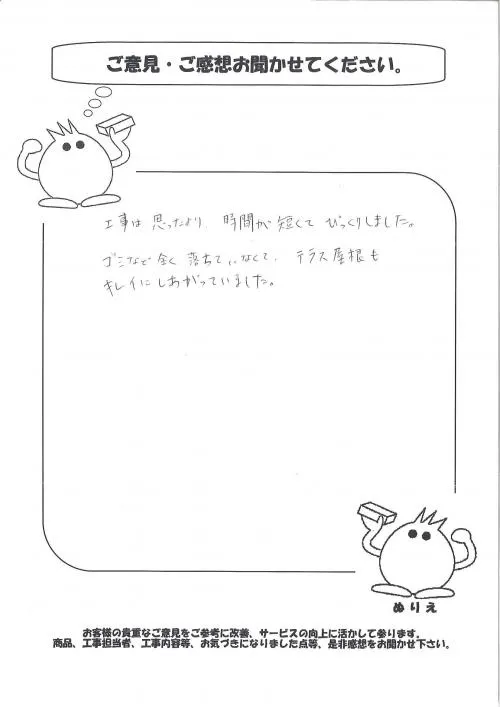 ご意見・ご感想お聞かせてください。
工事は思ったより、時間が短くてびっくりしました。
ゴミなど全く落ちていなくて、テラス屋根も
キレイにしあがっていました。
ぬりえ
お客様の貴重なご意見をご参考に改善、サービスの向上に活かして参ります。
商品、工事担当者、工事内容等、お気づきになりました点等、是非感想をお聞かせ下さい。